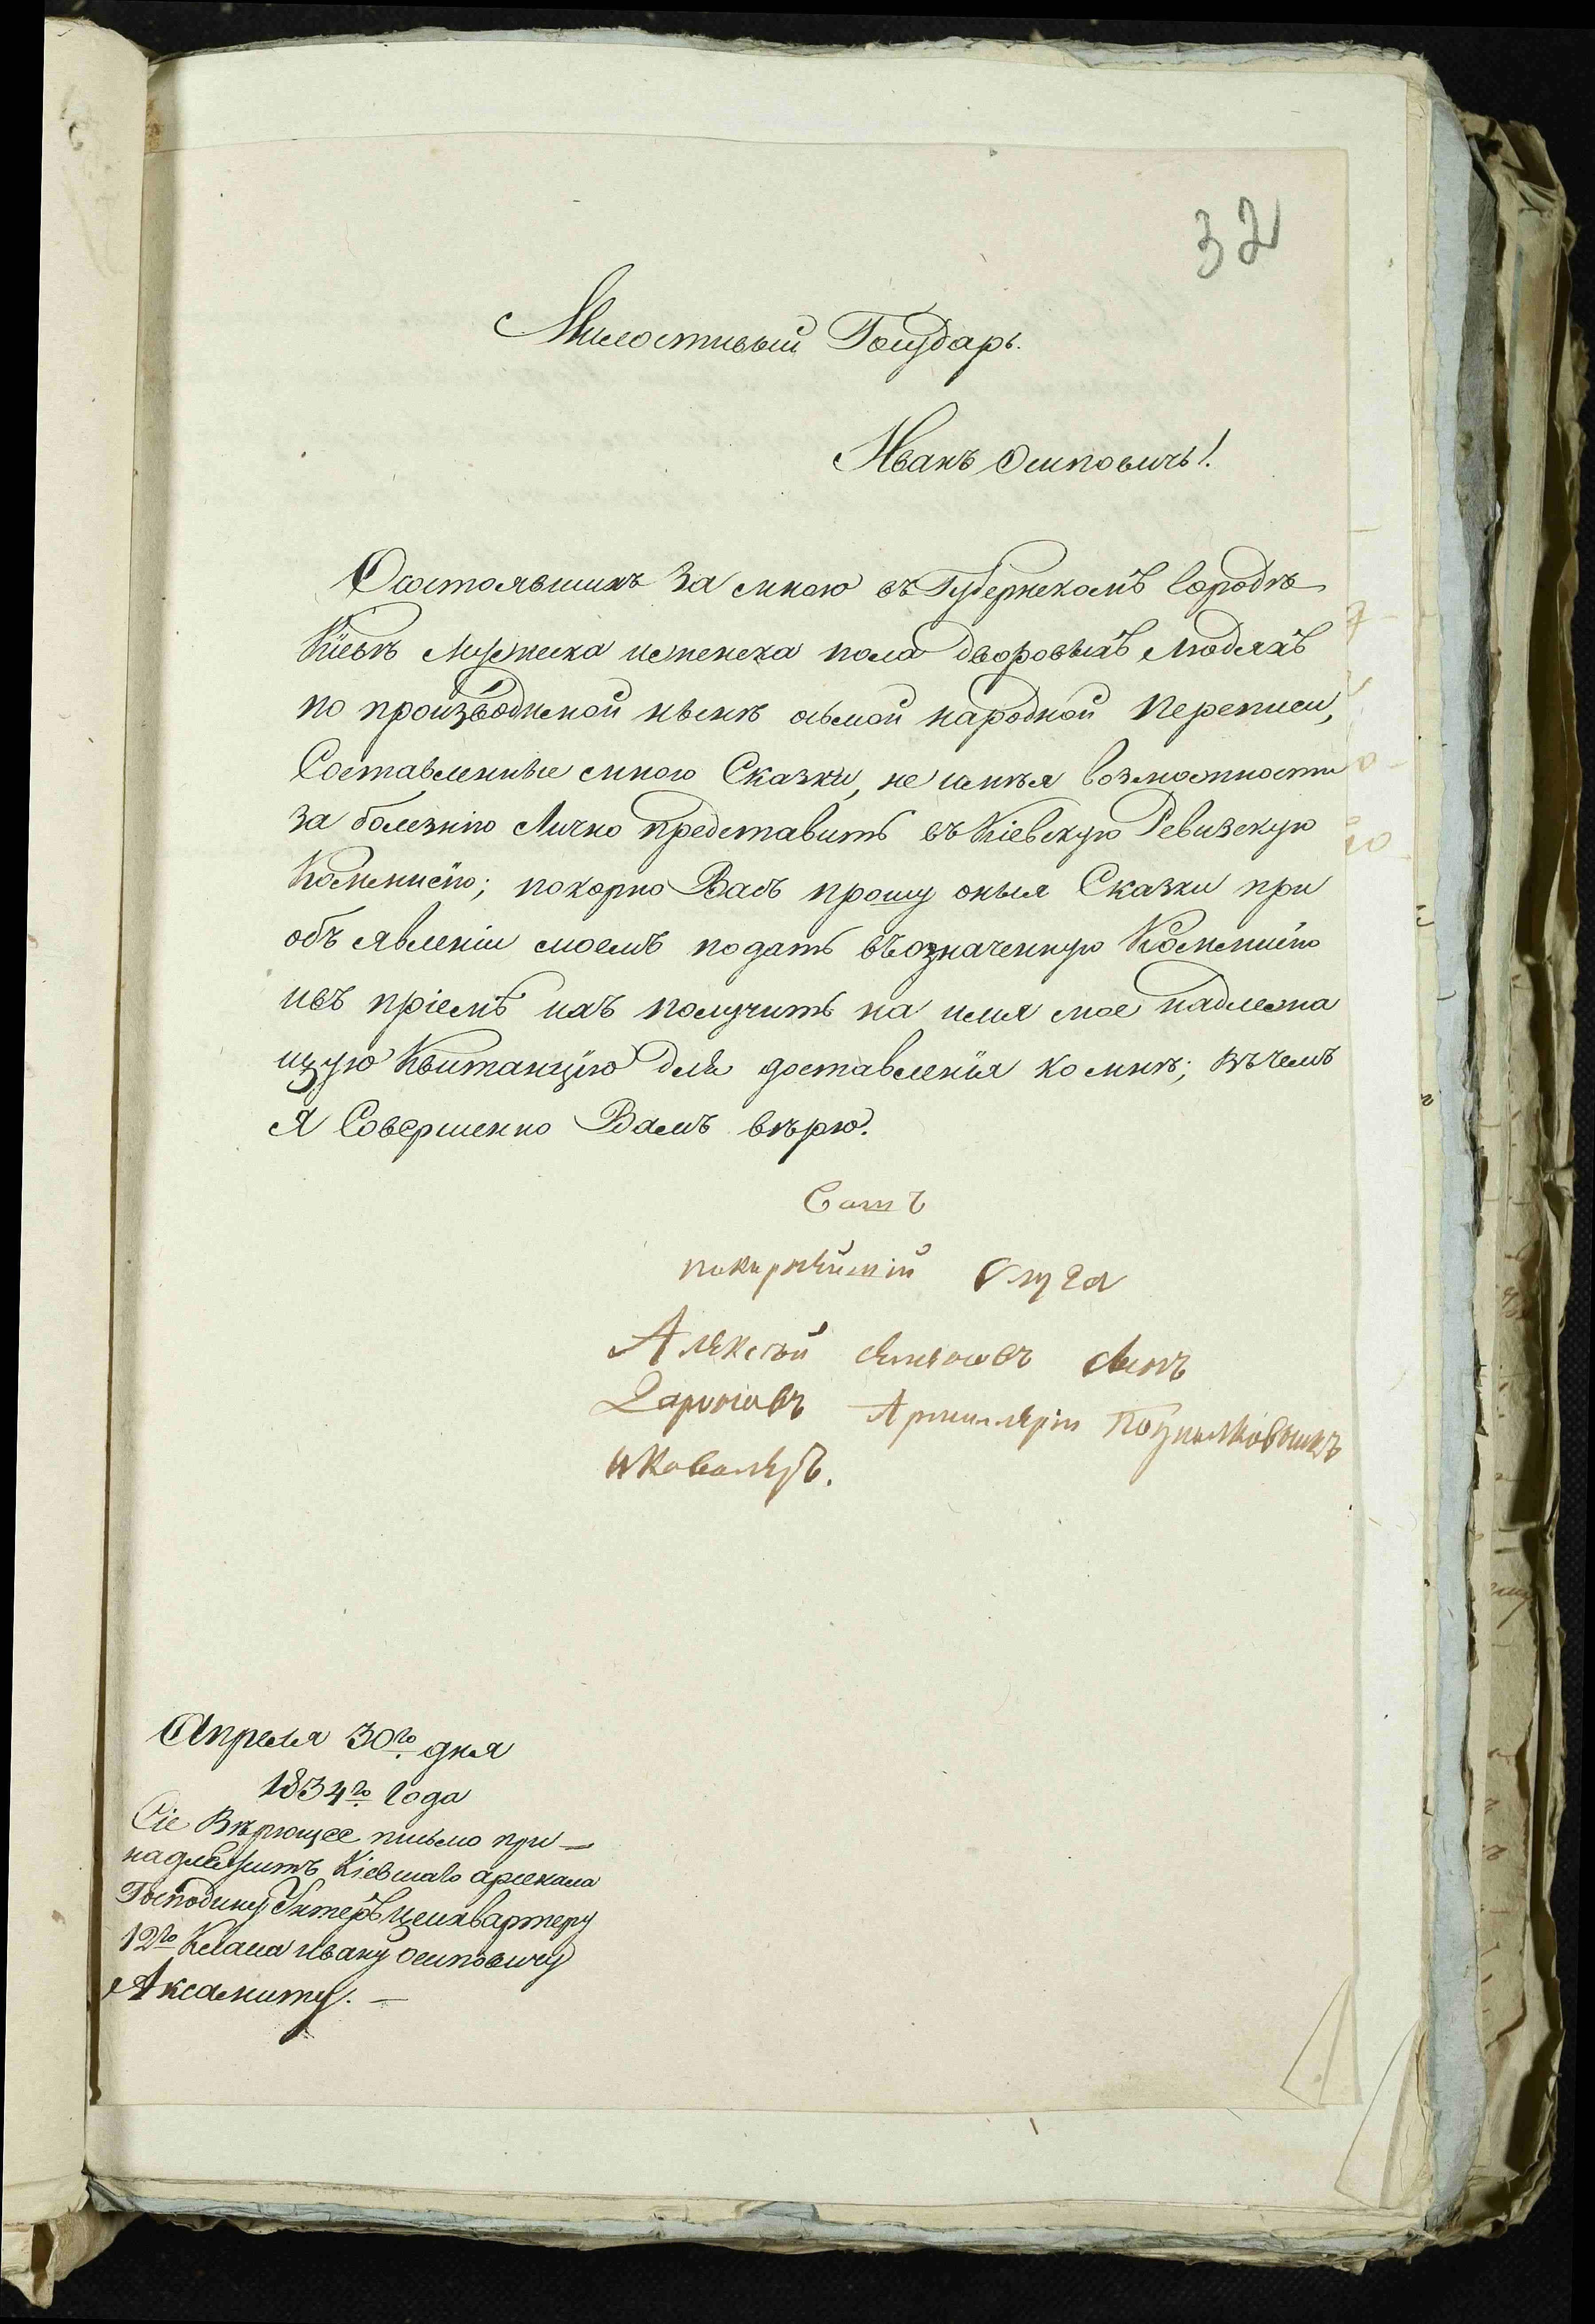 32
Милостивый Государь.
Иванъ Осиповичъ!
О состоявшихъ за мною въ Губернскомъ городѣ
Кіевѣ мужеска и женска пола дворовыхъ людяхъ
по производимой нынѣ осьмой народной переписи,
Составленныя мною Сказки, не имѣя возможности
за болезнію Лично представить въ Кіевскую Ревизскую
Коммисію; покорно Васъ прошу оныя Сказки при
объявленіи моемъ подать въ означенную Коммисію
и въ пріемѣ ихъ получить на имя мое надлежа
щую Квитанцію для доставленія ко мнѣ; въ чемъ
я Совершенно Вамъ вѣрю.
покорнѣйшій Слуга
Алексѣй сынъ
Артиллеріи Подполковникъ
и Кавалеръ.
Апреля 30го дня
1834го года
Сіе Вѣрющее письмо при-
надлежитъ Кіевскаго арсенала
Господину Унтеръ Цейхвартеру
12го Класса Ивану Осиповичу
Аксамиту. —